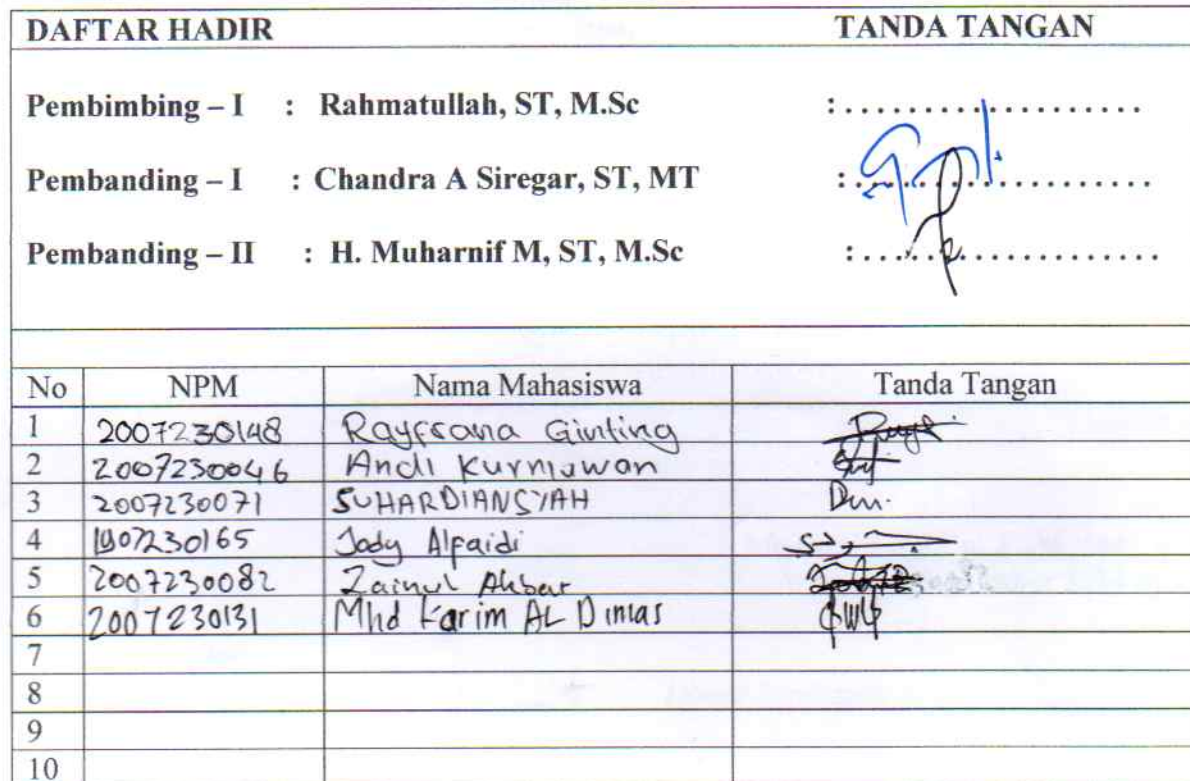 DAFTAR HADIR TANDA TANGAN
Pembimbing – I : Rahmatullah, ST, M.Sc : . . . . . . . . . . . . . . . . . . .
Pembanding – I : Chandra A Siregar, ST, MT : . . . . . . . . . . . . . . . . . . .
Pembanding – II : H. Muharnif M, ST, M.Sc : . . . . . . . . . . . . . . . . . . .
No NPM Nama Mahasiswa Tanda Tangan
1 2007230148 Rayfrana Ginting
2 2007230046 Andi Kurniawan
3 2007230071 SUHARDIANSYAH
4 1907230165 Jody Alfaidi
5 2007230082 Zainul Akbar
6 2007230131 Mhd Karim AL Dimas
7
8
9
10